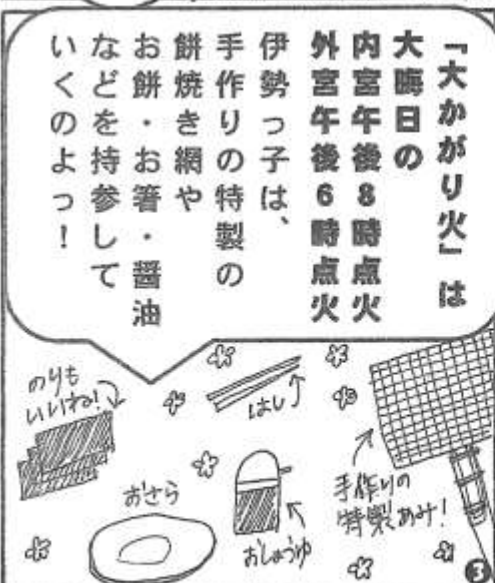 「大かがり火」は
大晦日の
内宮午後8時点火
外宮午後6時点火
伊勢っ子は、
手作りの特製の
餅焼き網や
お餅・お箸・醤油
などを持参して
いくのよっ！
のりも
いいね！
はし
手作りの
特製あみ！
おさら
おしょうゆ
3